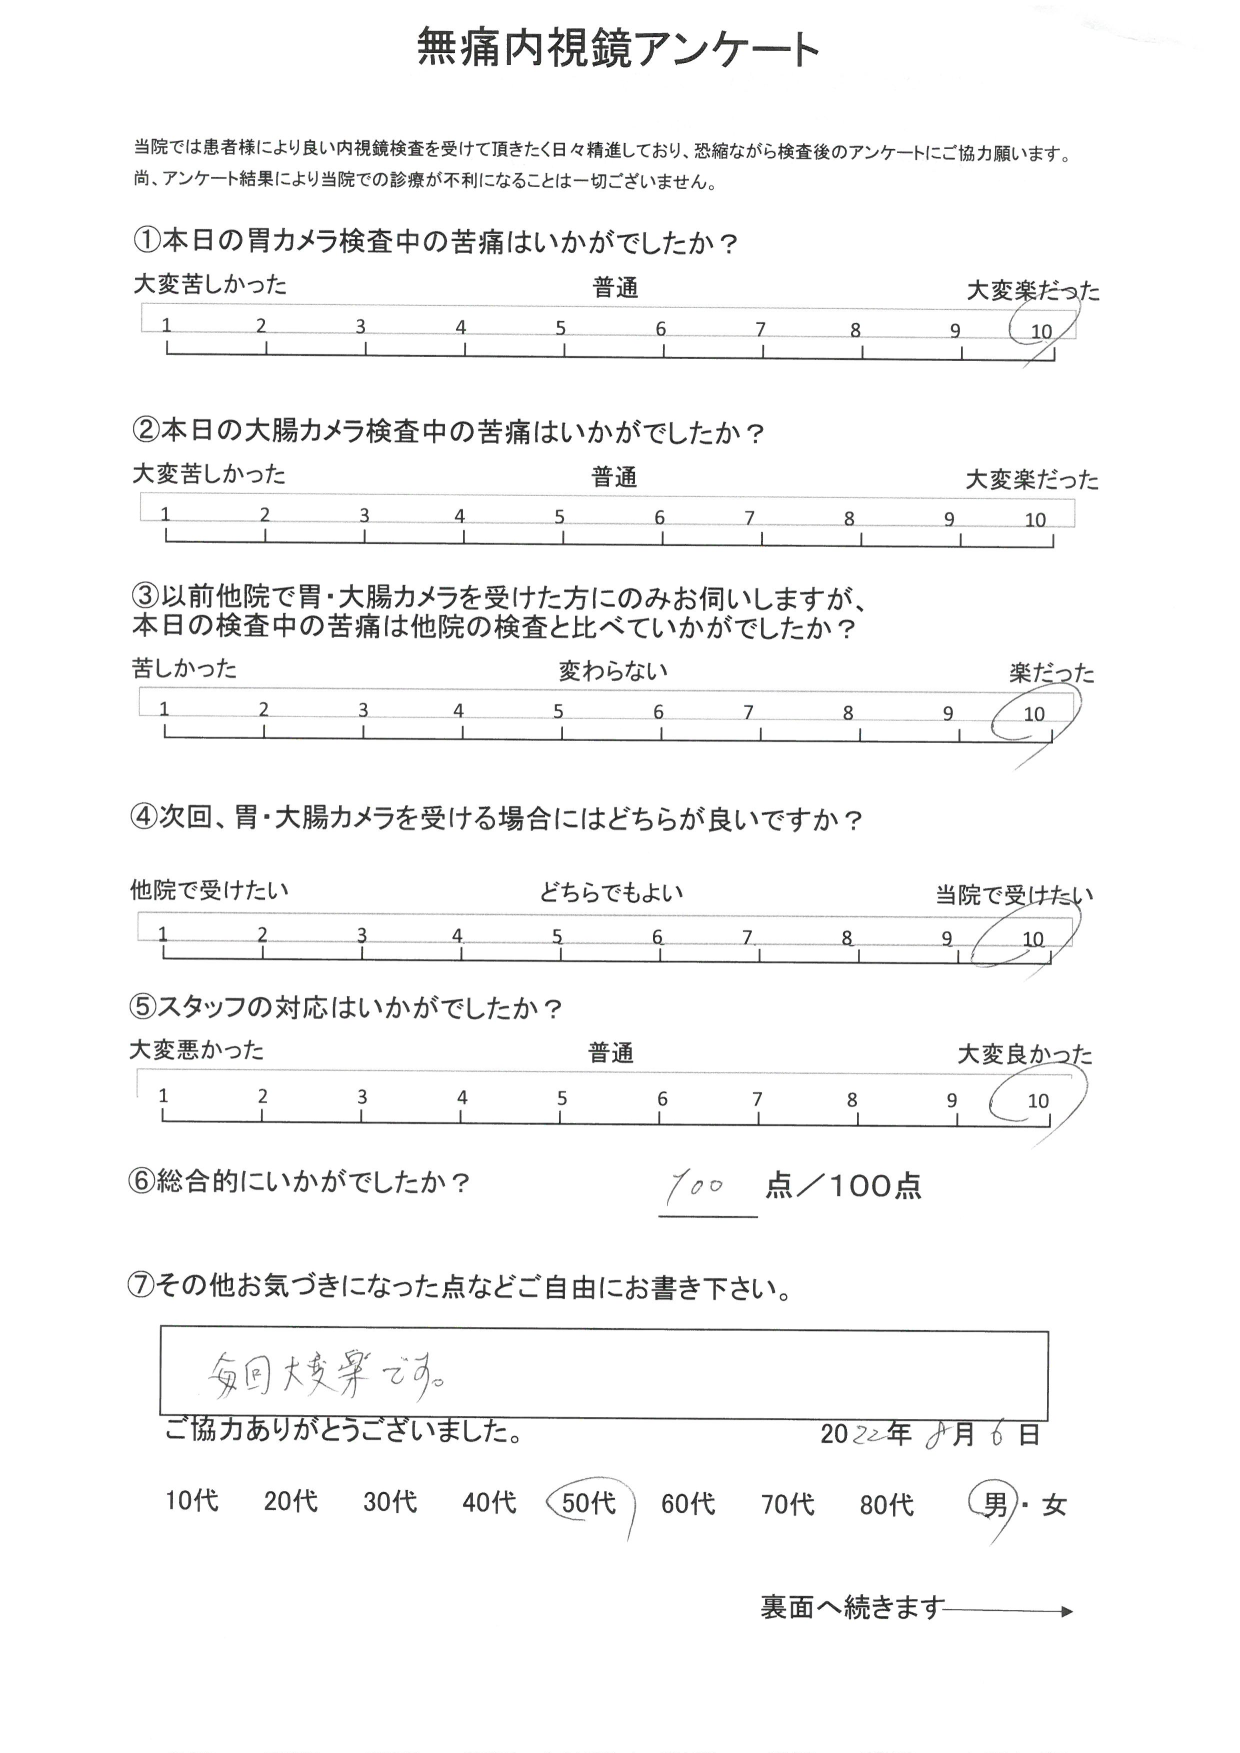 無痛内視鏡アンケート
当院では患者様により良い内視鏡検査を受けて頂きたく日々精進しており、恐縮ながら検査後のアンケートにご協力願います。
尚、アンケート結果により当院での診療が不利になることは一切ございません。
①本日の胃カメラ検査中の苦痛はいかがでしたか？
大変苦しかった 普通 大変楽だった
1 2 3 4 5 6 7 8 9 10
②本日の大腸カメラ検査中の苦痛はいかがでしたか？
大変苦しかった 普通 大変楽だった
1 2 3 4 5 6 7 8 9 10
③以前他院で胃・大腸カメラを受けた方にのみお伺いしますが、
本日の検査中の苦痛は他院の検査と比べていかがでしたか？
苦しかった 変わらない 楽だった
1 2 3 4 5 6 7 8 9 10
④次回、胃・大腸カメラを受ける場合にはどちらが良いですか？
他院で受けたい どちらでもよい 当院で受けたい
1 2 3 4 5 6 7 8 9 10
⑤スタッフの対応はいかがでしたか？
大変悪かった 普通 大変良かった
1 2 3 4 5 6 7 8 9 10
⑥総合的にいかがでしたか？ 100 点／100点
⑦その他お気づきになった点などご自由にお書き下さい。
毎回大変楽です。
ご協力ありがとうございました。 2022年 8月 6日
10代 20代 30代 40代 50代 60代 70代 80代 男・女
裏面へ続きます